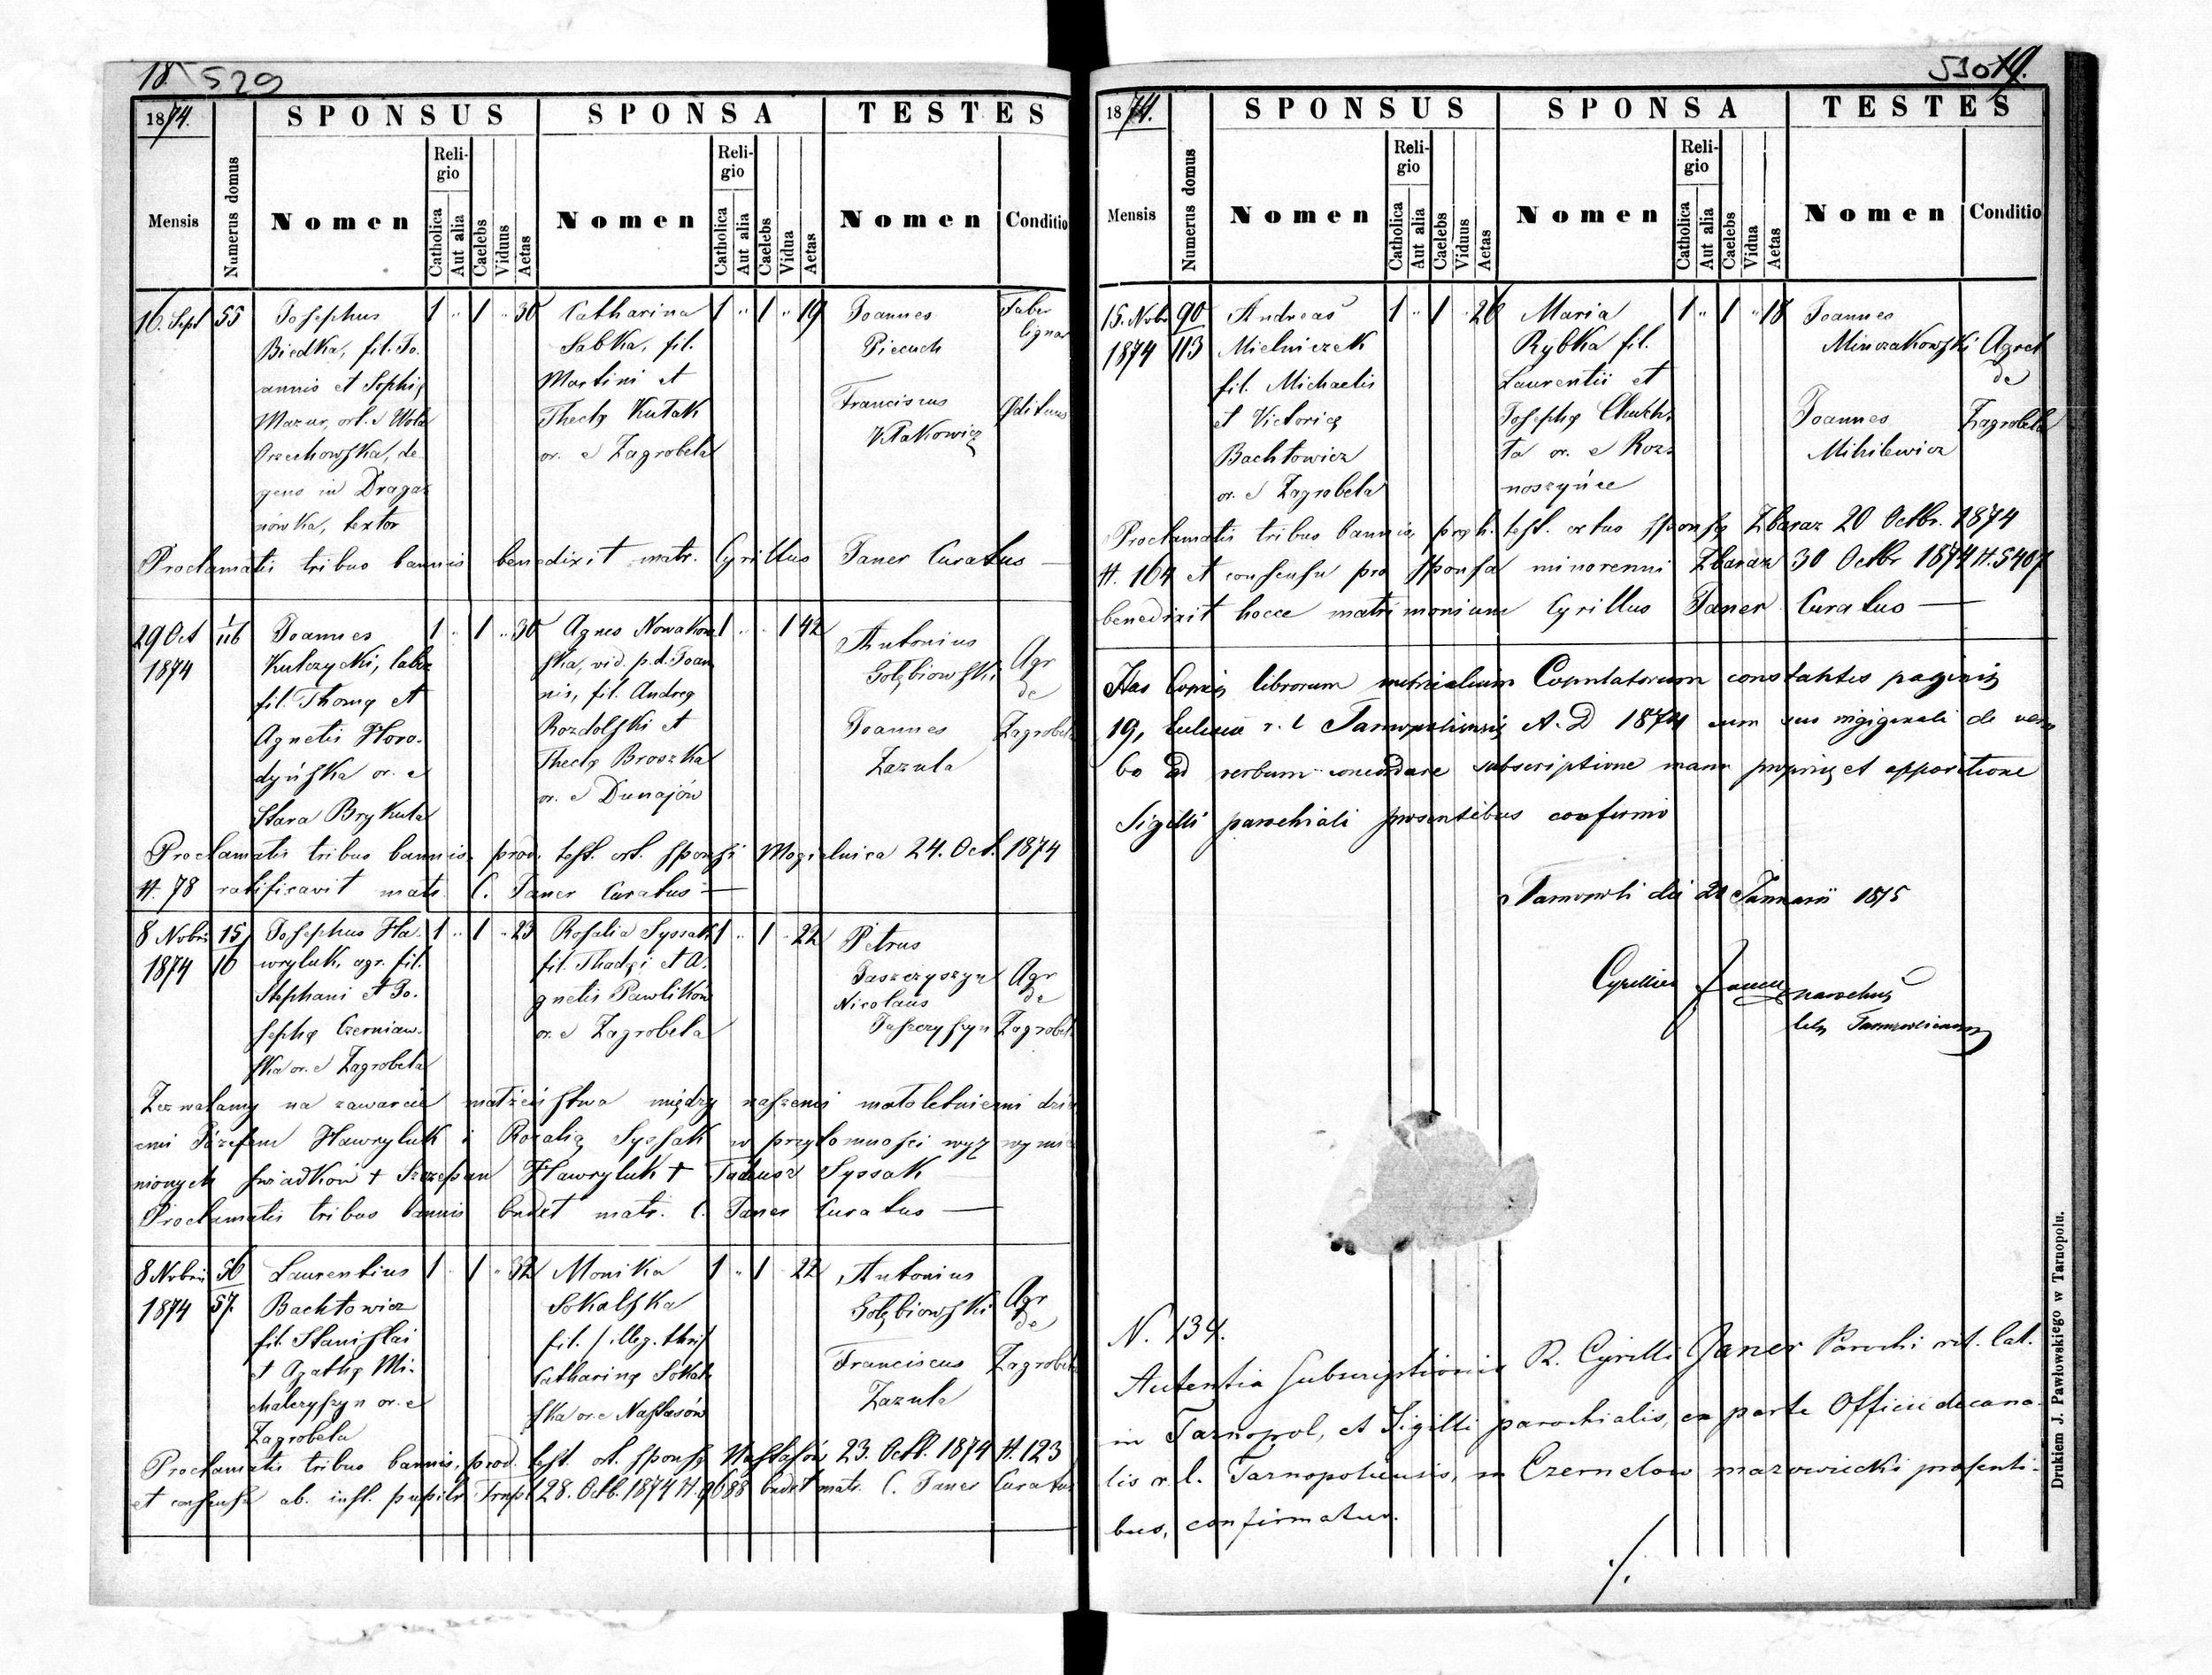 18. 529
1874. SPONSUS SPONSA TESTES
Mensis Numerus domus Nomen Religio Catholica Aut alia Caelebs Viduus Aetas Nomen Religio Catholica Aut alia Caelebs Vidua Aetas Nomen Conditio
16. Sept 55 Josephus 1 " 1 " 30 Catharina 1 " 1 " 19 Joannes Faber
Biedka, fil. Jo- Sabka, fil. Piecuch lignar
annis et Sophię Martini et
Mazur, ort. e Wola Theclę Kutak Franciscus
Orzechowska, de- or. e Zagrobela Kłakowicz
gens in Draga-
nówka, textor
Proclamatis tribus bannis benedixit matr. Cyrillus Janer Curatus —
29 Oct 116 Joannes 1 " 1 " 30 Agnes Nowakow- 1 " " 1 42 Antonius Agr
1874 Kulczycki, ska, vid. p.d. Joan- Gołębiowski de
fil. Thomę et nis, fil. Andreę Joannes Zagrobela
Agnetis Horo- Rozdolski et Zazula
dyńska or. e Theclę Broszka
Stara Brykula or. e Dunajów
Proclamatis tribus bannis, prod. test. ort. sponsi Mogielnica 24. Oct. 1874
N. 78 ratificavit matr. C. Janer Curatus —
8 Nobris 15/16 Josephus Ha- 1 " 1 " 23 Rosalia Syssak 1 " 1 " 22 Petrus Agr
1874 wryluk, agr. fil. fil. Thadęi et A- Jaszczyszyn de
Stephani et Jo- gnetis Pawlików Nicolaus Zagrobela
sephę Czerniaw- or. e Zagrobela Jaszczyszyn
ska or. e Zagrobela
Zezwalamy na zawarcie małżeństwa między naszemi małoletniemi dzie
cmi Józefem Hawryluk i Rozalią Syssak w przytomności wyż wymie
nionych świadków + Szczepan Hawryluk + Tadeusz Syssak
Proclamatis tribus bannis bndxt matr. C. Janer Curatus —
8 Nobris 56 Laurentius 1 " 1 " 32 Monika 1 " 1 " 22 Antonius Agr
1874 57. Bachtowicz Sokalska Gołębiowski de
fil. Stanislai fil. illeg. thri Franciscus Zagrobela
et Agathę Mi- Catharinę Sokal- Zazula
chalczyszyn or. e ska or. e Nastasów
Zagrobela
Proclamatis tribus bannis, prod. test. ort. sponsę Nastasów 23. Octb. 1874 N. 123
et consensu ab. inst. pupilr. 28. Octb. 1874 N. 9688 bndxt matr. C. Janer Curatus
530 19.
1874. SPONSUS SPONSA TESTES
Mensis Numerus domus Nomen Religio Catholica Aut alia Caelebs Viduus Aetas Nomen Religio Catholica Aut alia Caelebs Vidua Aetas Nomen Conditio
15. Nobr 90 Andreas 1 " 1 " 26 Maria 1 " 1 " 18 Joannes
1874 113 Mielniczek Rybka fil. Minczakowski
fil. Michaelis Laurentii et de
et Victorię Josephę Joannes Zagrobela
Bachtowicz or. e Roz- Mihilewicz
or. e Zagrobela noszyńce
Proclamatis tribus bannis, test. ortus sponsę Zbaraz 20 Octbr. 1874
N. 164 et consensu pro sponsa minorenni Zbaraz 30 Octbr 1874 N. 5407
benedixit hocce matrimonium Cyrillus Janer Curatus —
Has Copias librorum metricalium Copulatorum constantes paginis
19, r. l. Tarnopoliensis A. D 1874 cum suo originali de ver
bo ad verbum concordare subscriptione manu propria et appositione
Sigilli parochiali presentibus confirmo
Tarnopoli die 20 Januarii 1875
Cyrillus Janer parochus
N. 134.
Autentia subscriptionis R. Cyrilli Janer Parochi rit. lat.
in Tarnopol, et Sigilli parochialis, ex parte Officii decana-
lis r. l. Tarnopoliensis, in Czernelow mazowiecki presenti-
bus, confirmatur.
Drukiem J. Pawłowskiego w Tarnopolu.